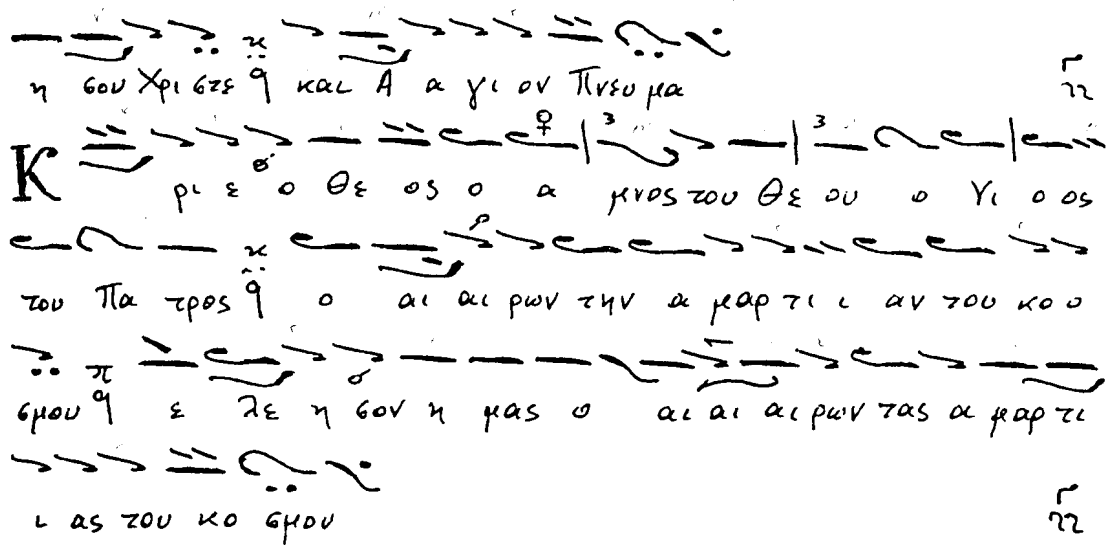 η σου Χρι στε και Α α γι ον Πνευ μα
Κ ρι ε ο Θε ος ο α μνος του Θε ου ο Υι ο ος
του Πα τρος ο αι αι ρων την α μαρ τι ι αν του κο ο
σμου ε λε η σον η μας ο αι αι αι ρων τας α μαρ τι
ι ας του κο σμου